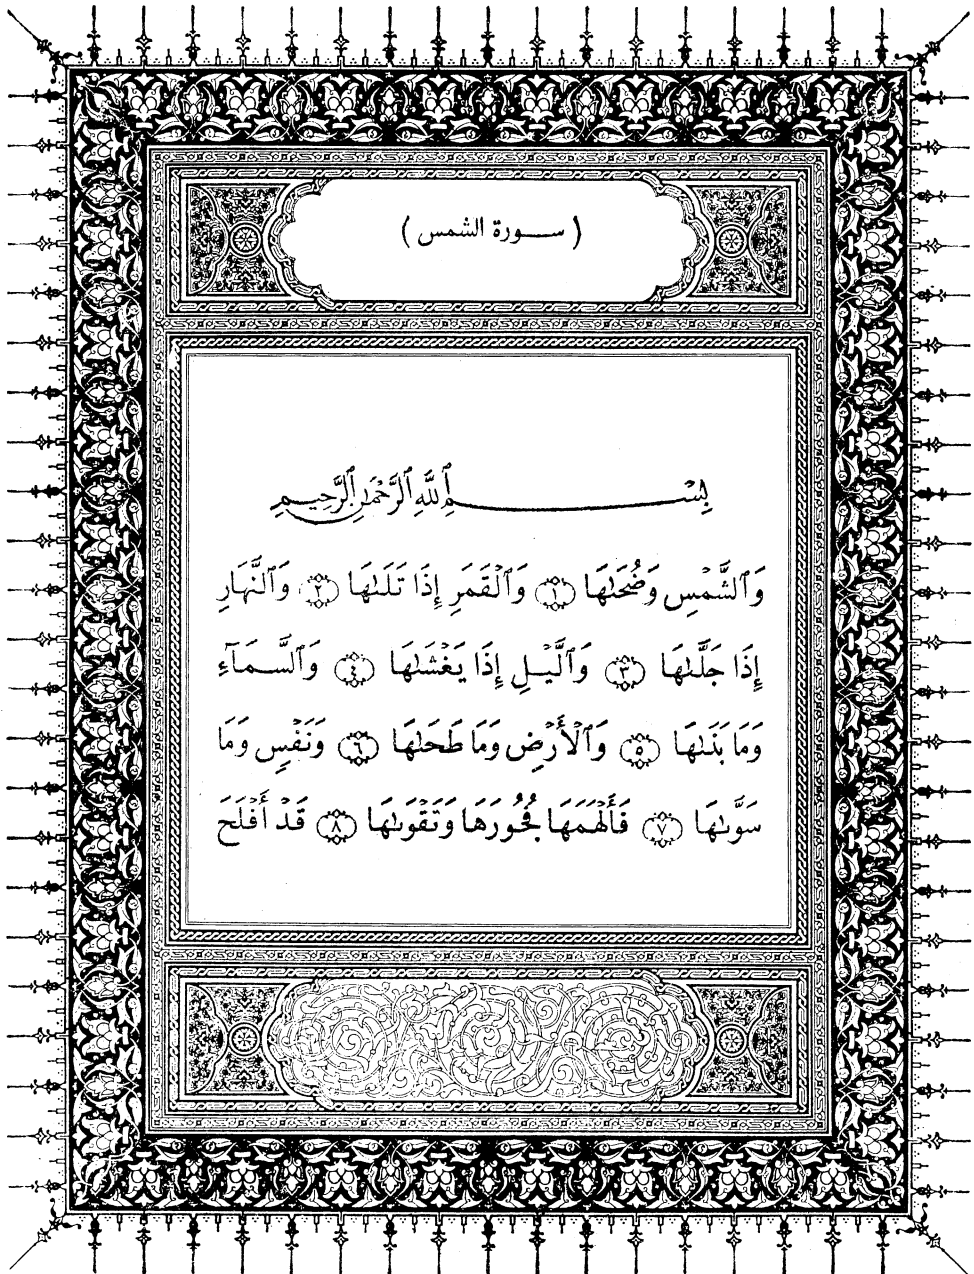 ( ســـورة الشمس )
بِسْــــــمِ ٱللَّهِ ٱلرَّحْمَٰنِ ٱلرَّحِيمِ
وَٱلشَّمْسِ وَضُحَىٰهَا ﴿١﴾ وَٱلْقَمَرِ إِذَا تَلَىٰهَا ﴿٢﴾ وَٱلنَّهَارِ
إِذَا جَلَّىٰهَا ﴿٣﴾ وَٱلَّيْـلِ إِذَا يَغْشَىٰهَا ﴿٤﴾ وَٱلسَّـمَآءِ
وَمَا بَنَىٰهَا ﴿٥﴾ وَٱلْأَرْضِ وَمَا طَحَىٰهَا ﴿٦﴾ وَنَفْسٍ وَمَا
سَوَّىٰهَا ﴿٧﴾ فَأَلْهَمَهَا فُجُورَهَا وَتَقْوَىٰهَا ﴿٨﴾ قَدْ أَفْلَحَ